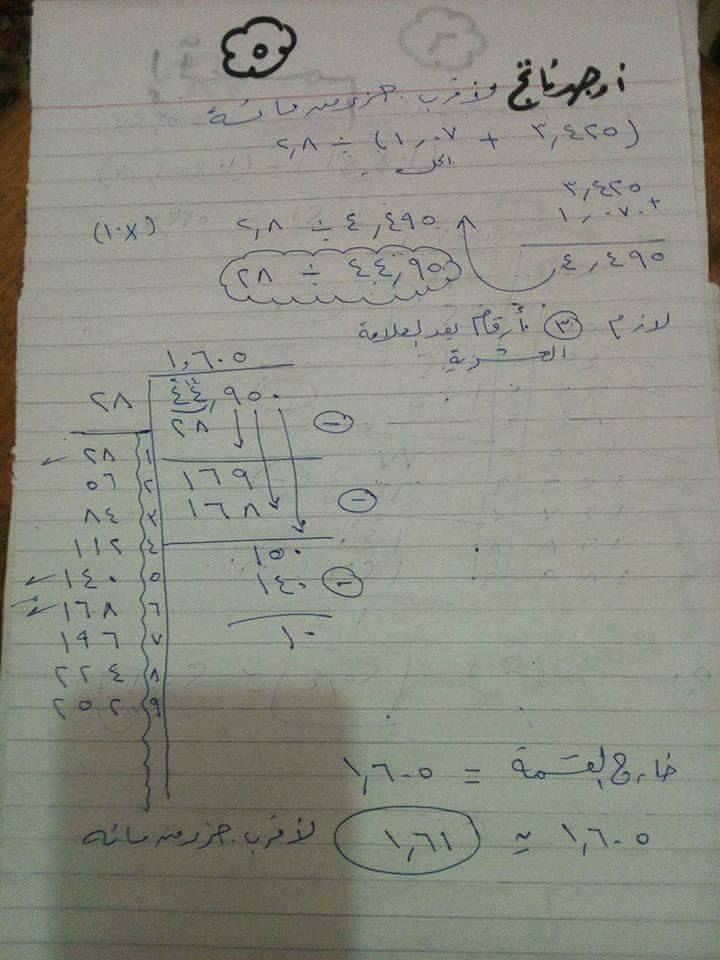 ٥
أوجد ناتج لأقرب جزء من مائة
(٣,٤٢٥ + ١,٠٧) ÷ ٢,٨
الحل
٣,٤٢٥
١,٠٧٠+
٤,٤٩٥
٤,٤٩٥ ÷ ٢,٨ (×١٠)
٤٤,٩٥ ÷ ٢٨
لازم ٣ أرقام بعد العلامة
العشرية
١,٦٠٥
٢٨ ٤٤,٩٥٠
٢٨ -
١٦٩
١٦٨ -
١٥٠
١٤٠ -
١٠
١ ٢٨
٢ ٥٦
٣ ٨٤
٤ ١١٢
٥ ١٤٠
٦ ١٦٨
٧ ١٩٦
٨ ٢٢٤
٩ ٢٥٢
خارج القسمة = ١,٦٠٥
١,٦٠٥ ≃ ١,٦١ لأقرب جزء من مائة